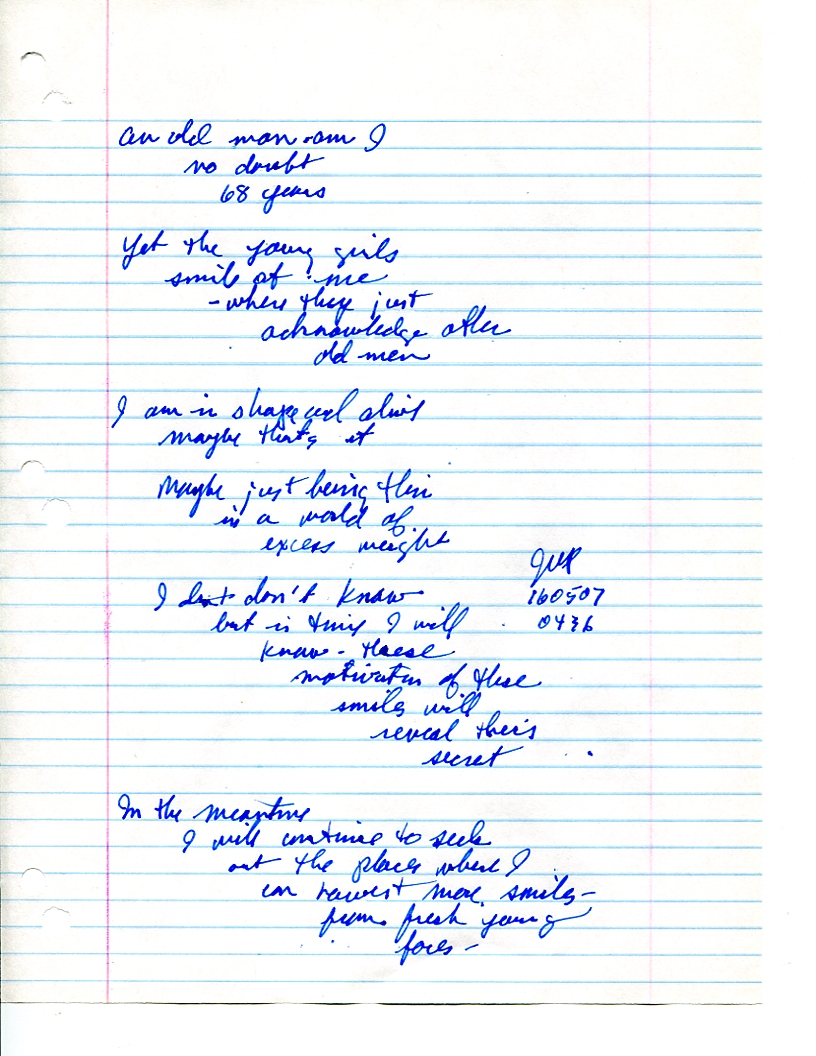 An old man - am I
no doubt
68 years
Yet the young girls
smile at me
- where they just
acknowledge other
old men
I am in shape and alive
maybe thats it
Maybe just being thin
in a world of
excess weight
I don't know
but in time I will
know - these
motivation of these
smiles will
reveal their
secret
JWR
160507
0436
In the meantime
I will continue to seek
out the places where I
can harvest more smiles -
from fresh young
faces -